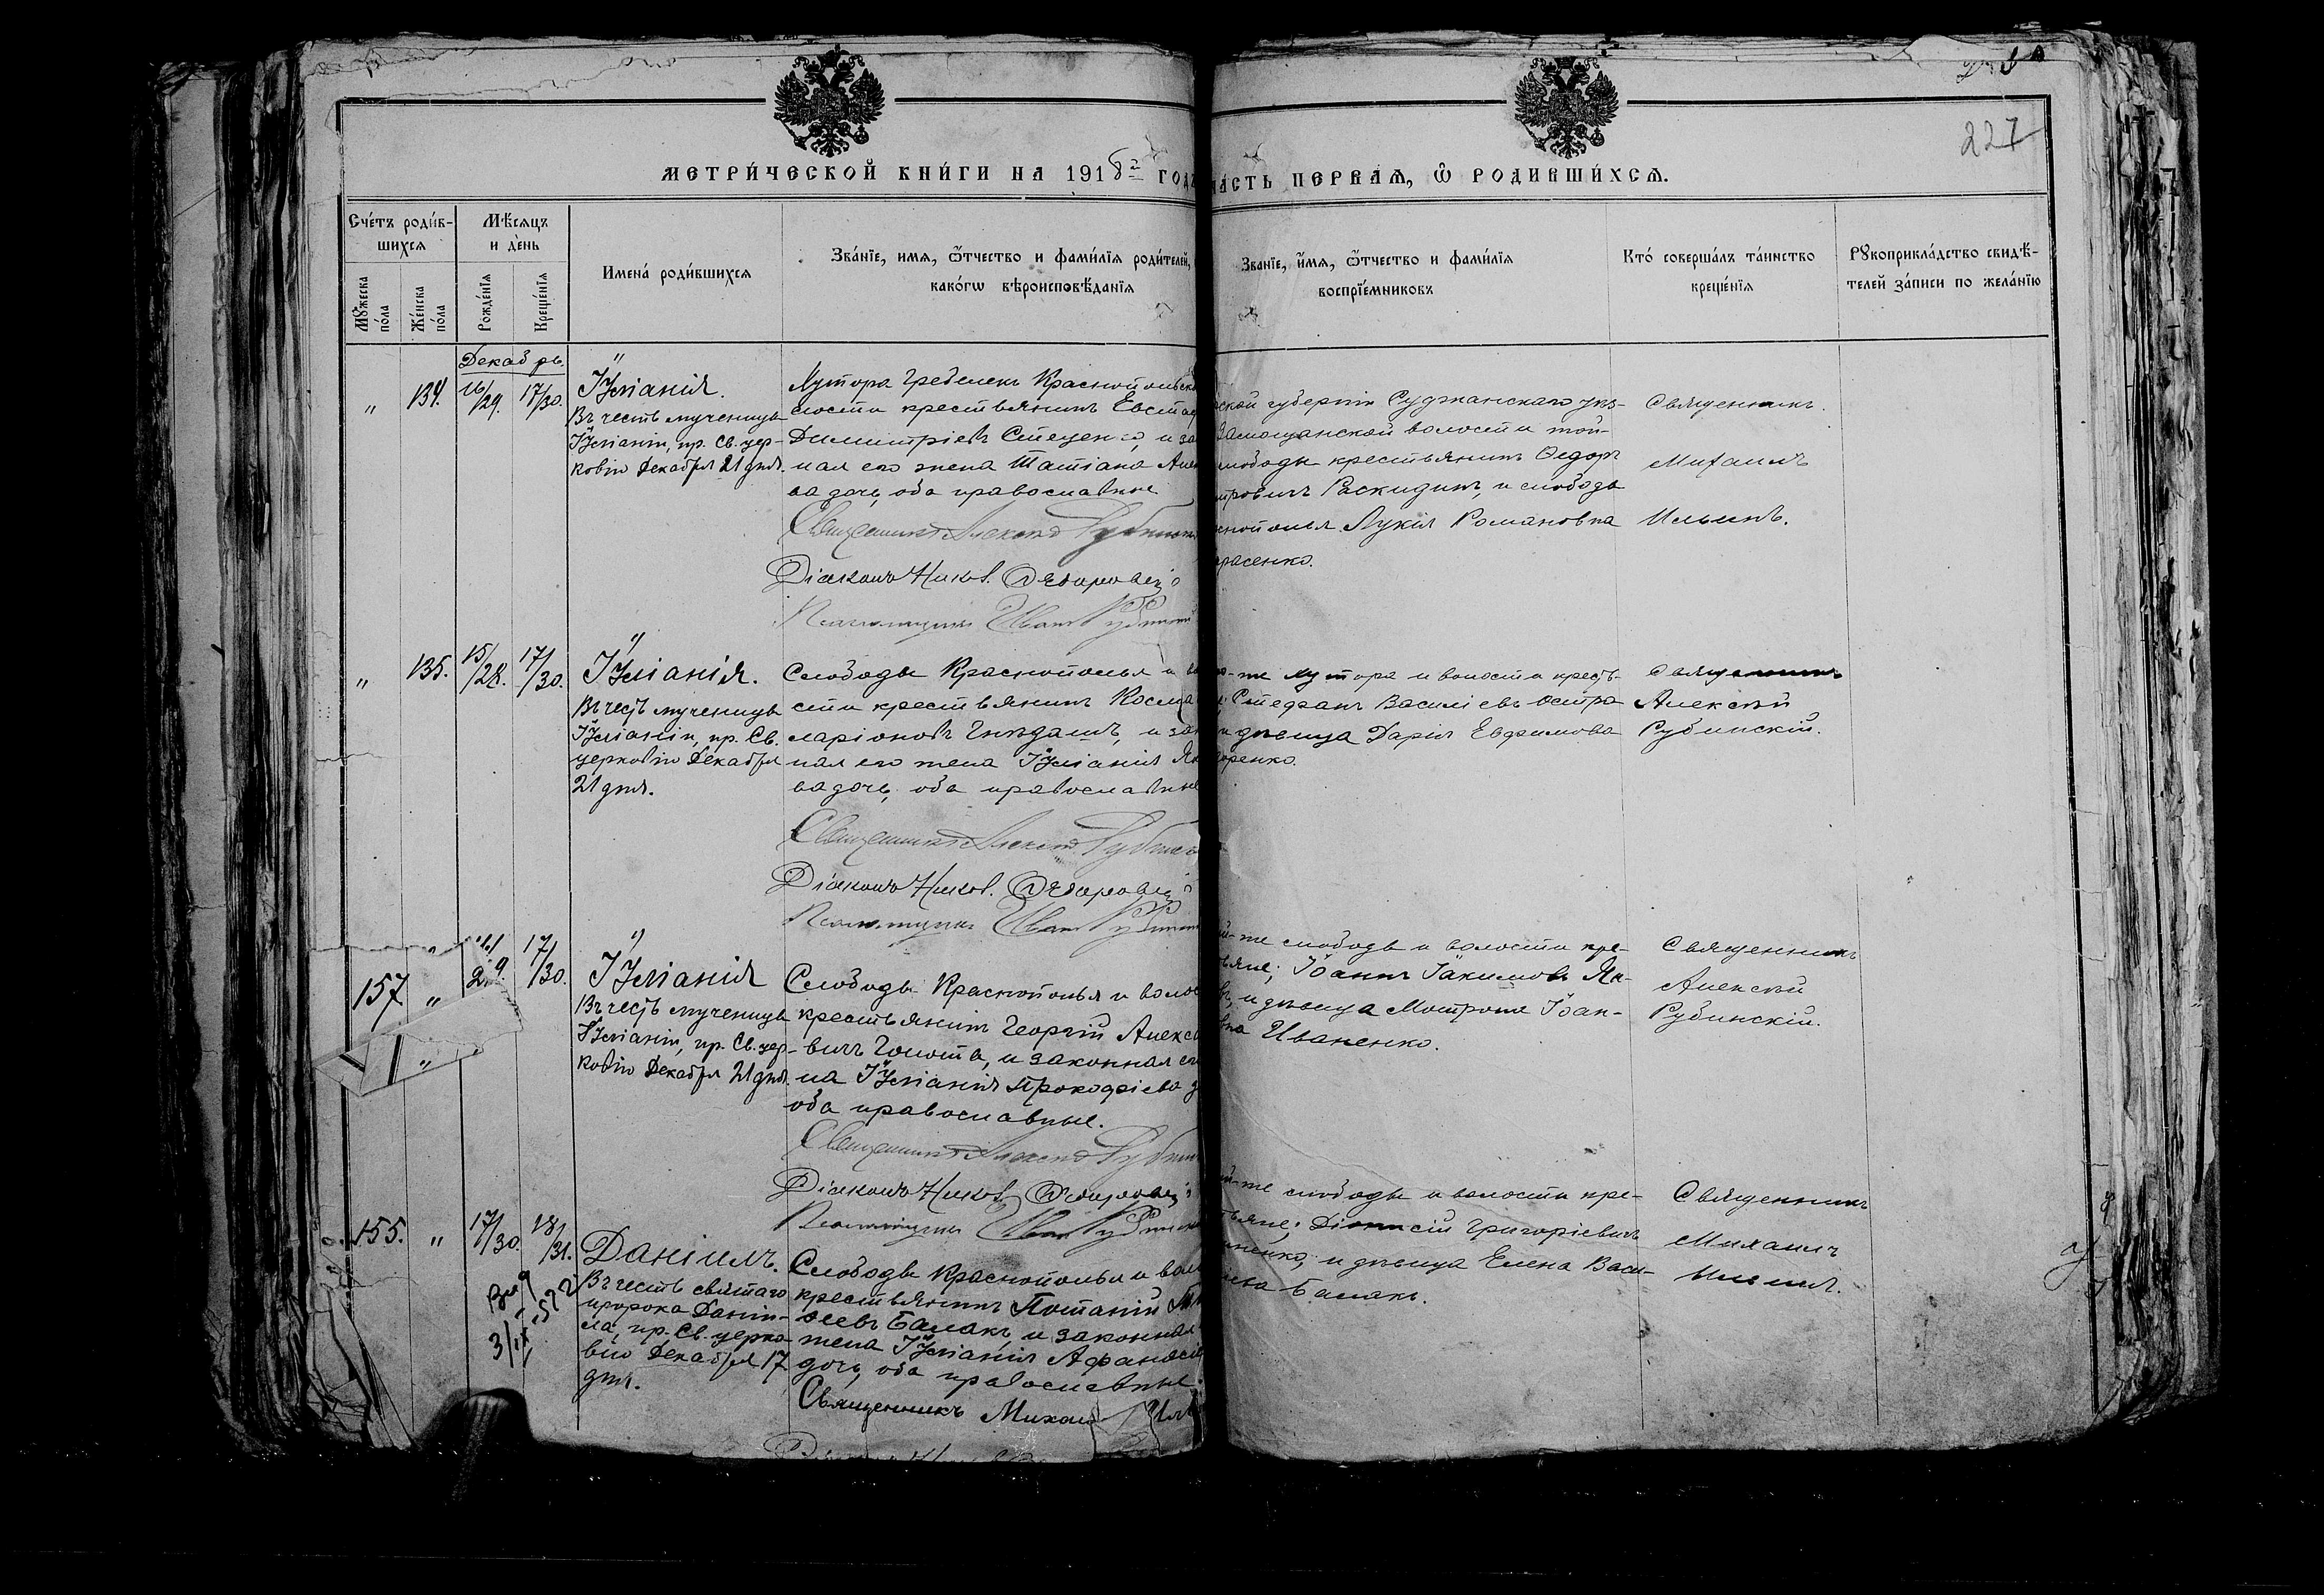 227
МЕТРИ́ЧЕСКОЙ КНИ́ГИ НА 1918й ГОДЪ
ЧА́СТЬ ПЕ́РВАѦ, Ѽ РОДИВШИ́ХСѦ.
Сче́тъ роди́в-
шихсѧ
Мѣ́сѧцъ
и де́нь
Мꙋ́жеска по́ла
Же́нска по́ла
Рожде́нїѧ
Креще́нїѧ
Имена́ роди́вшихсѧ
Зва́нїе, имѧ, ѻ҆́тчество и фами́лїѧ роди́телей,
како́гѡ вѣроисповѣ́данїѧ
Зва́нїе, и҆́мѧ, ѻ҆́тчество и фами́лїѧ
воспрїе́мниковъ
Кто́ соверша́лъ та́инство
креще́нїѧ
Рꙋкоприкла́дство свидѣ́-
телей за́писи по жела́нїю
Декабрь.
" 134. 16/29. 17/30.
Іуліанія.
Въ честь мученицы
Іуліаніи, пр. Св. цер-
ковію Декабря 21 дня.
Хутора Гребелекъ Краснопольско
лости крестьянинъ Евста
Димитріевъ Стеценко, и за
ная его жена Татіана Але
ва дочь, оба православные
Священникъ Алексѣй Рубинск
Діаконъ Никол.
Псаломщикъ Иван Рубинский
ской губерніи Суджанскаго уѣз-
Замощанской волости той-
слободы крестьянинъ Ѳедоръ
тровичъ Раскидинъ, и слободы
снополья Лукія Романовна
арасенко.
Священникъ
Михаилъ
Ильинъ.
" 135. 15/28. 17/30.
Іуліанія.
Въ честь мученицы
Іуліаніи, пр. Св.
церковію Декабря
21 дня.
Слободы Краснополья и во
сти крестьянинъ Косма
ларіоновъ Гнѣдашъ, и зак
ная его жена Іуліанія Як
ва дочь, оба православные
Священникъ Алексѣй Рубинск
Діаконъ Никол.
Псаломщикъ Иван Рубинский
-же хутора и волости кресть-
Стефанъ Василіевъ Остра
и дѣвица Дарія Евфимова
оренко.
Священникъ
Алексѣй
Рубинскій.
157 " 29. 17/30.
Іуліанія
Въ честь мученицы
Іуліаніи, пр. Св. цер-
ковію Декабря 21 дня.
Слободы Краснополья и волос
крестьянинъ Георгій Алексѣ
вичъ Голота, и законная ег
на Іуліанія Прокофіева д
оба православные.
Священникъ Алексѣй Рубин
Діаконъ Никол.
Псаломщикъ Иван Рубинск
й-же слободы и волости кре-
тьяне; Іоаннъ Іакимовъ Як-
въ, и дѣвица Мотрона Іоан-
вна Иваненко.
Священникъ
Алексѣй
Рубинскій.
155. " 17/30. 18/31.
Даніилъ.
Въ честь святаго
пророка Даніи-
ла, пр. Св. церко-
вію Декабря 17
дня.
Слободы Краснополья и вол
крестьянинъ Потапій
сеевъ Балакъ, и законная
жена Іуліанія Афанасіе
дочь, оба православные.
Священникъ Михаил Иль
й-же слободы и волости кре-
тьяне; Діонисій Григоріевичъ
ненко, и дѣвица Елена Васи-
іева Балакъ.
Священникъ
Михаилъ
Ильинъ.